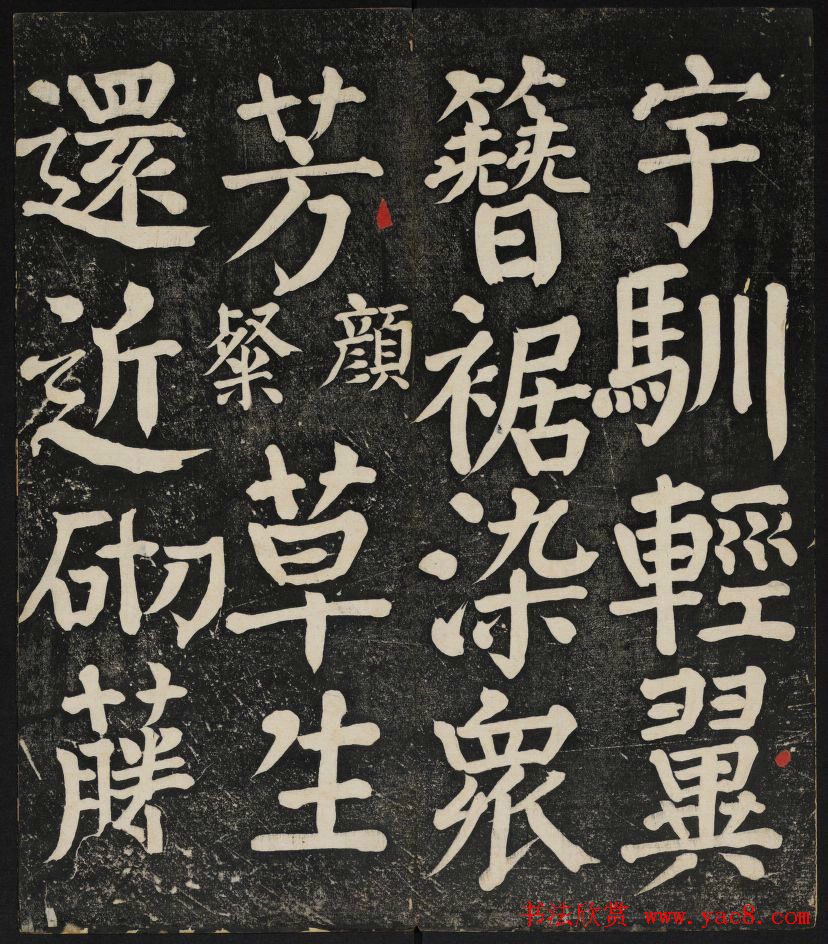 宇馴輕翼
簪裾染衆
芳顔粲草生
還近砌藤
书法欣赏 www.yac8.com